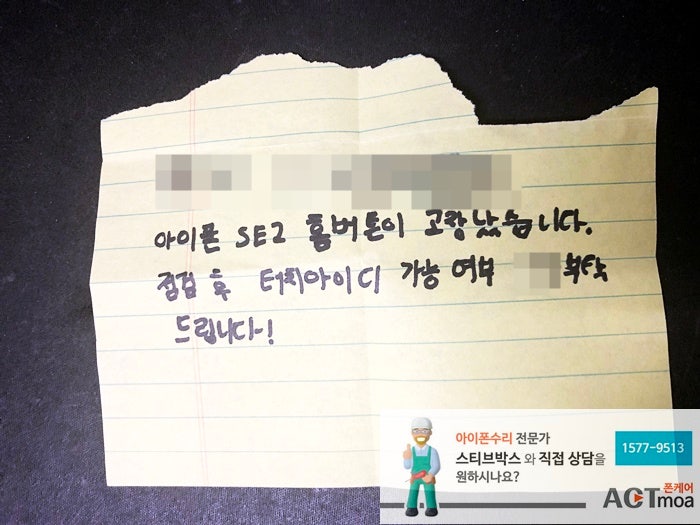 아이폰 SE2 홈버튼이 고장났습니다.
점검 후 터치아이디 가능 여부 부탁
드립니다~!
아이폰수리 전문가
스티브박스와 직접 상담을
원하시나요?
1577-9513
폰케어
ACTmoa